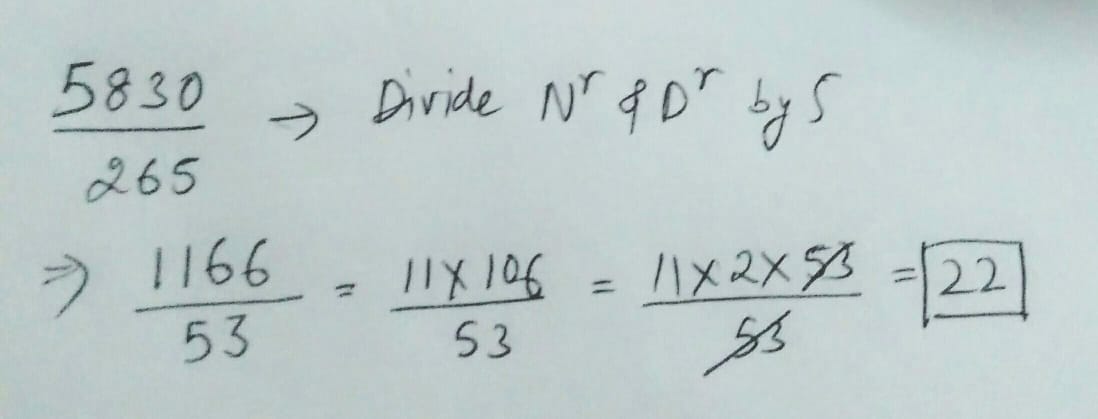 5830/265 → Divide Nʳ & Dʳ by 5
⇒ 1166/53 = 11×106/53 = 11×2×53/53 = 22